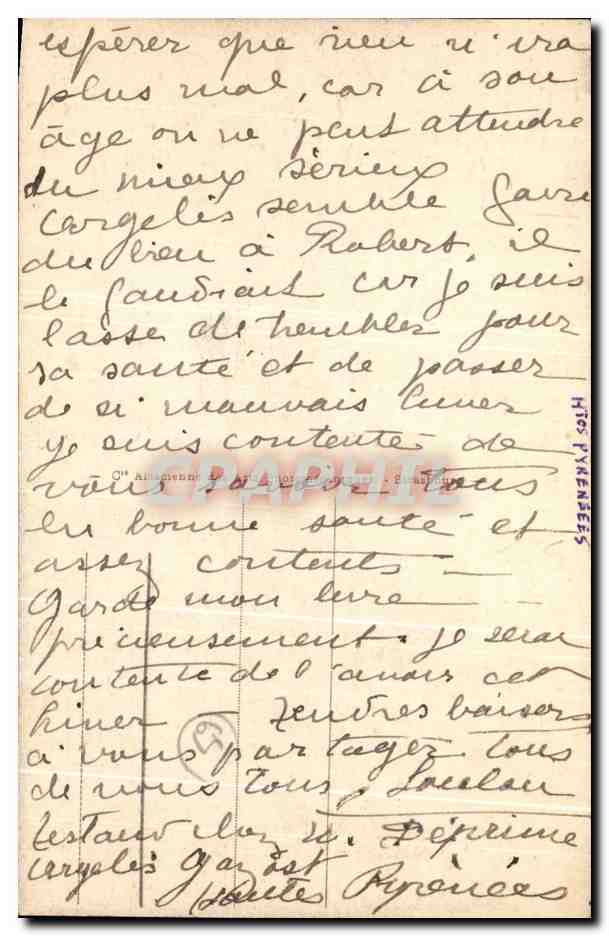 espérer que rien n'ira
plus mal, car à son
âge on ne peut attendre
du mieux sérieux
Argelès semble faire
du bien à Robert, il
le faudrait car je suis
lasse de trembler pour
sa santé et de passer
de si mauvais hiver
je suis contente de
vous savoir tous
en bonne santé et
assez contents —
Garde mon livre
précieusement. je serai
contente de l'avoir cet
hiver — Tendres baisers
à vous partager tous
de nous tous, Loulou
chez M.
Argelès Gazost
Hautes Pyrénées
Cie Alsacienne
CPAPHIL
HTES PYRENEES
65